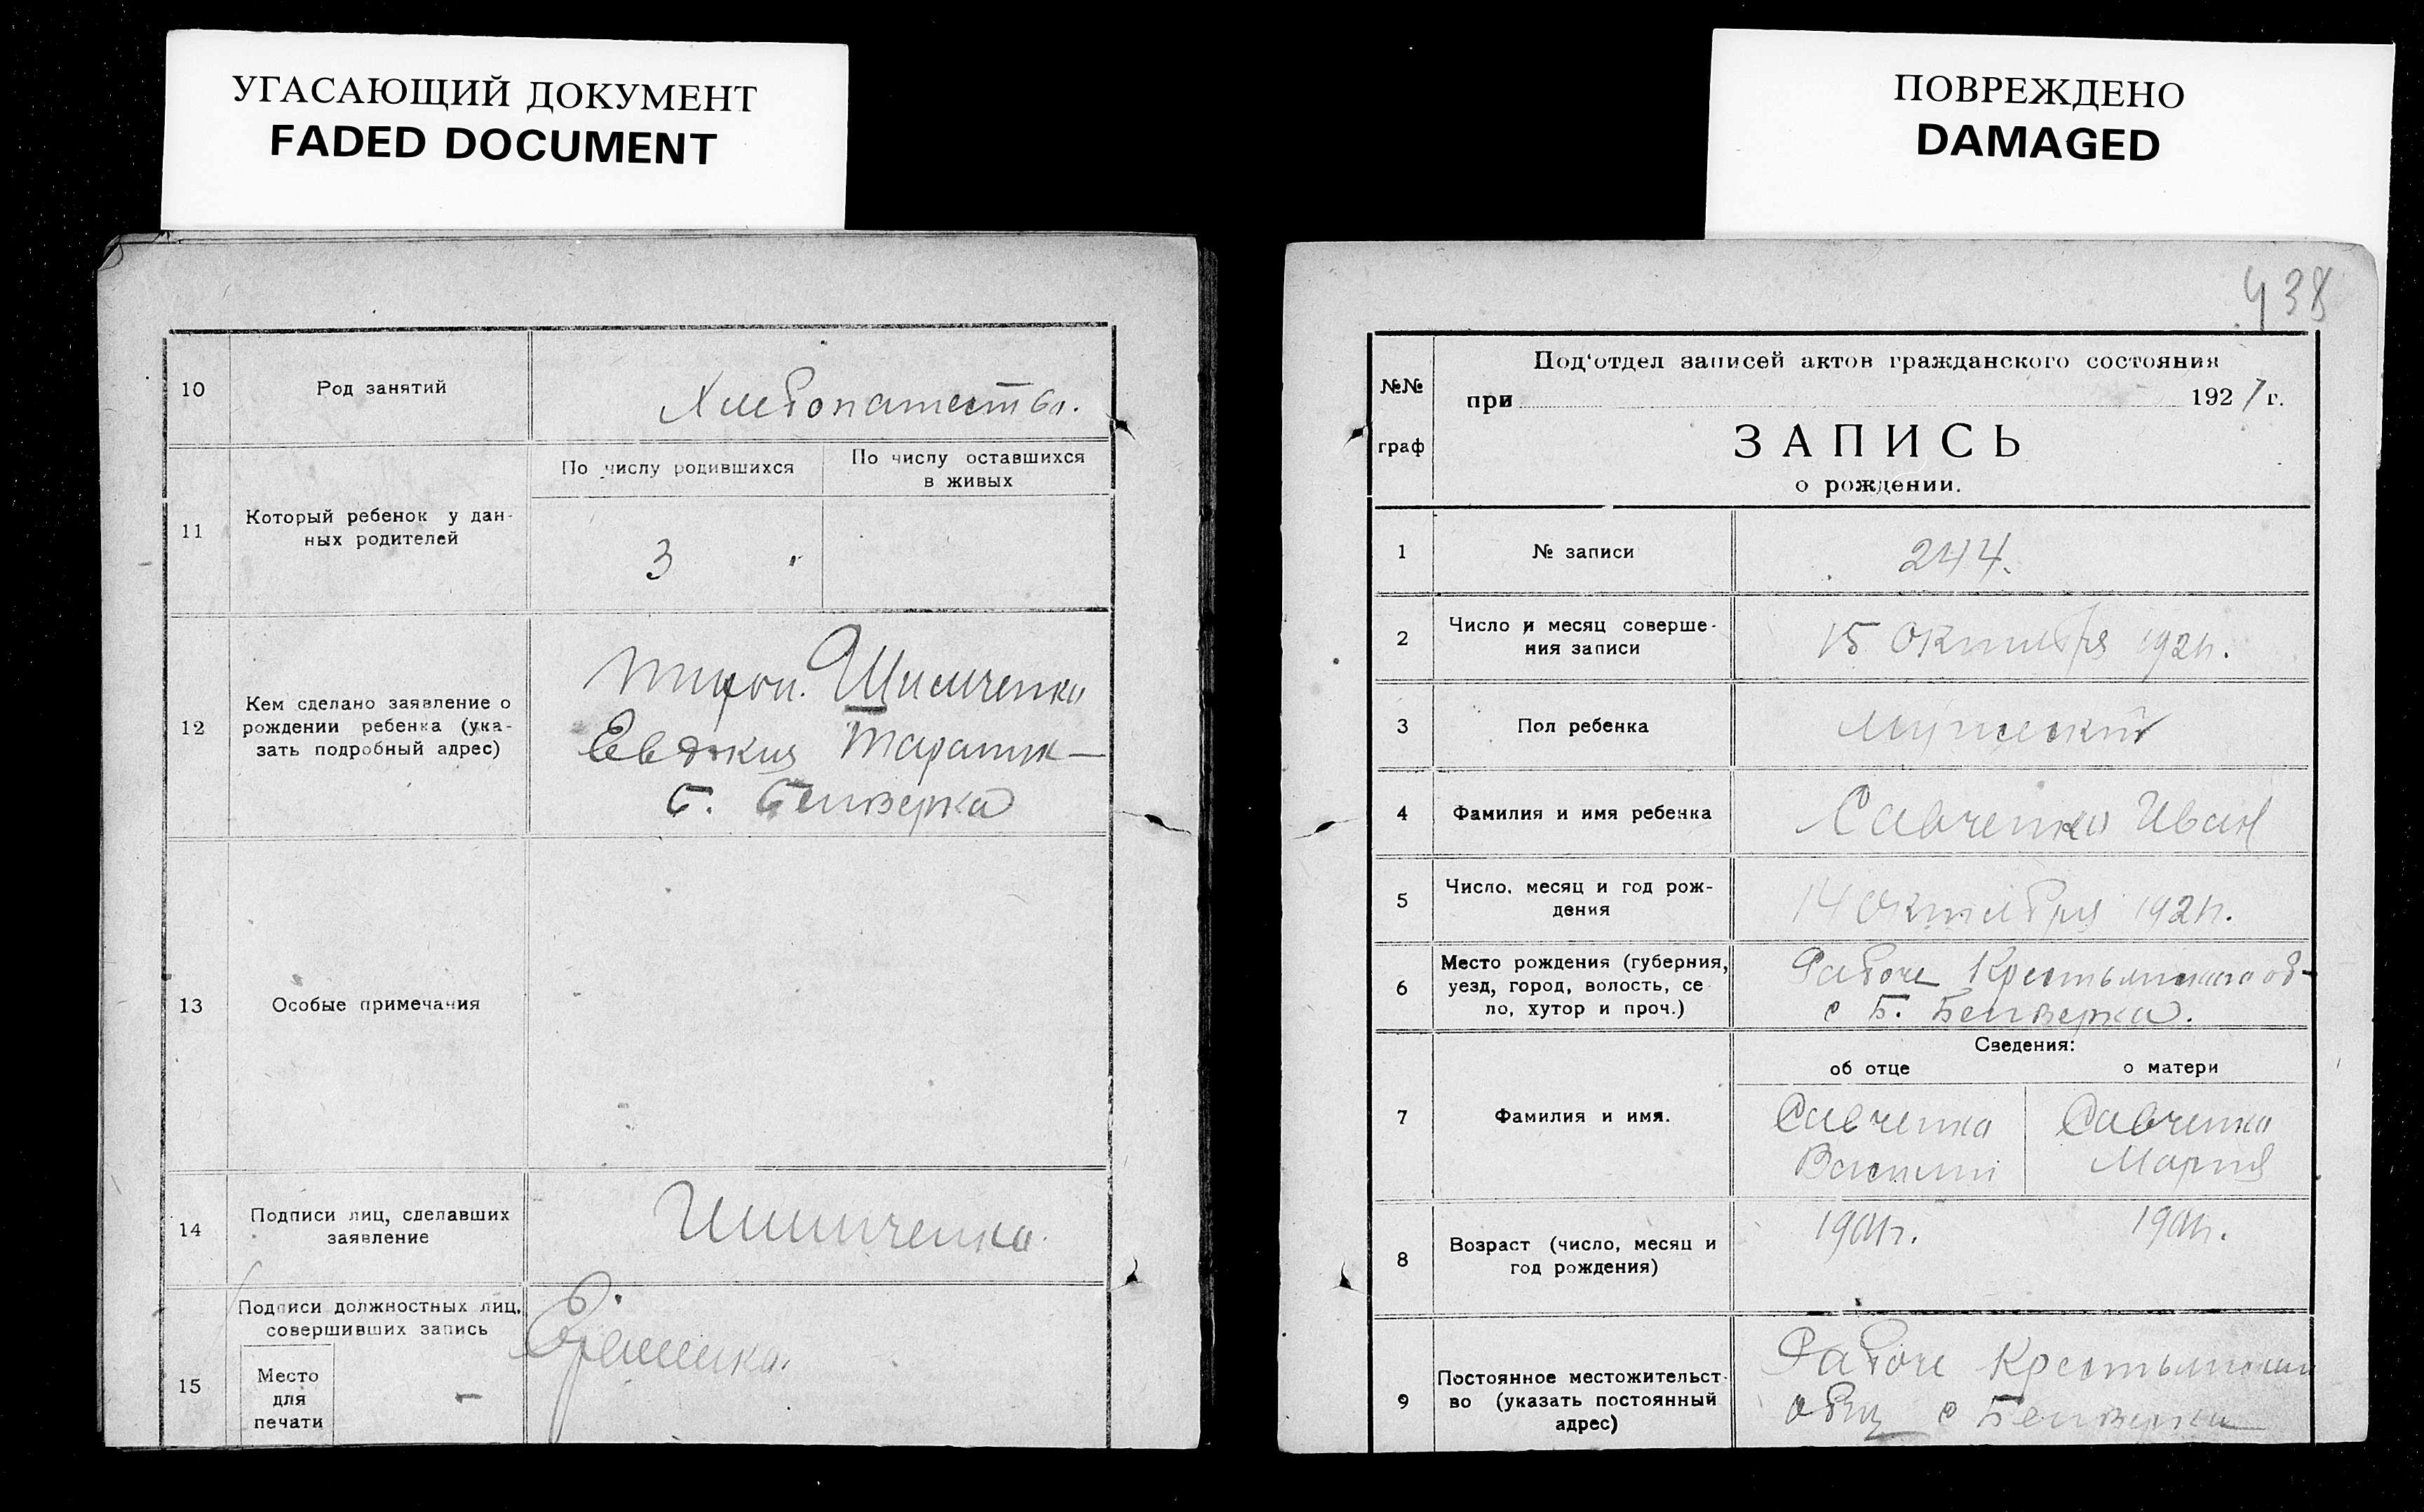 УГАСАЮЩИЙ ДОКУМЕНТ
FADED DOCUMENT
10
Род занятий
11
Который ребенок у дан-
ных родителей
По числу родившихся
По числу оставшихся
в живых
3
12
Кем сделано заявление о
рождении ребенка (ука-
зать подробный адрес)
Евдокия
13
Особые примечания
14
Подписи лиц, сделавших
заявление
15
Подписи должностных лиц,
совершивших запись
Место
для
печати
ПОВРЕЖДЕНО
DAMAGED
438
№№
граф
Под'отдел записей актов гражданского состояния
при 1921 г.
ЗАПИСЬ
о рождении.
1
№ записи
244.
2
Число и месяц соверше-
ния записи
15 Октября 1921г.
3
Пол ребенка
Мужеский
4
Фамилия и имя ребенка
Савченко Иван
5
Число, месяц и год рож-
дения
14 Октября 1921г.
6
Место рождения (губерния,
уезд, город, волость, се
ло, хутор и проч.)
Рабоче
с Б.
Сведения:
об отце
о матери
7
Фамилия и имя.
Савченко
Василий
Савченко
Мария
8
Возраст (число, месяц и
год рождения)
1901г.
1901г.
9
Постоянное местожительст-
во (указать постоянный
адрес)
Рабоче
общ с